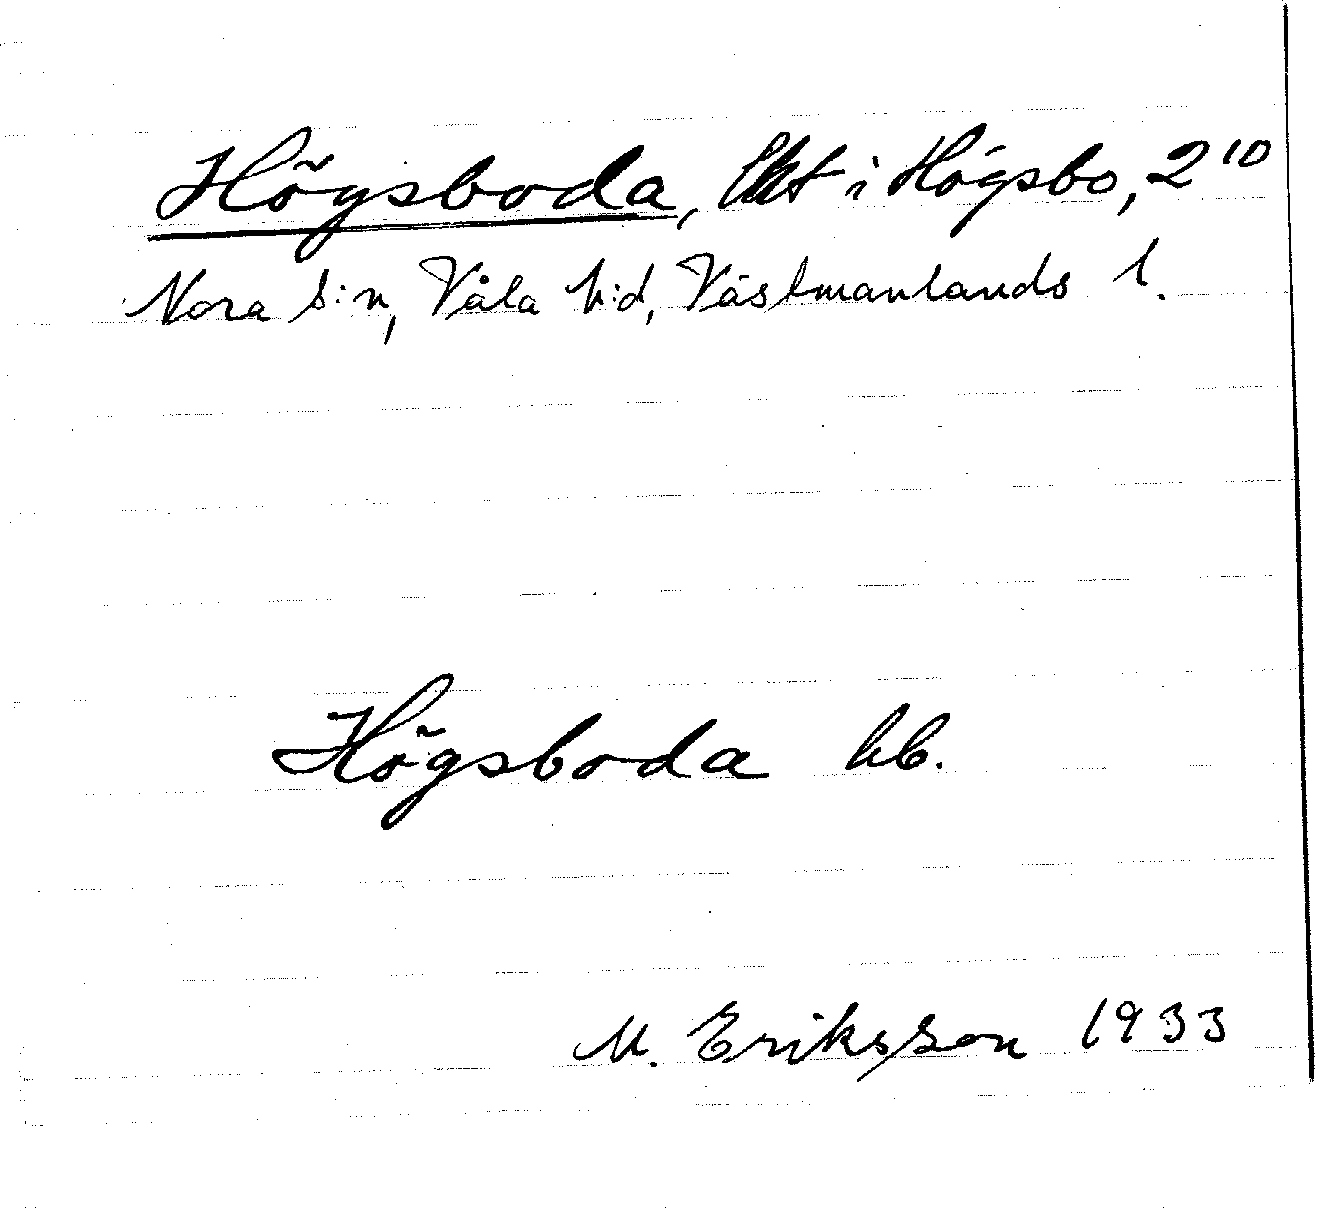 Högsboda, i Högsbo, 2¹⁰
Nora s:n, Våla h:d, Västmanlands l.
Högsboda hb.
M. Eriksson 1933